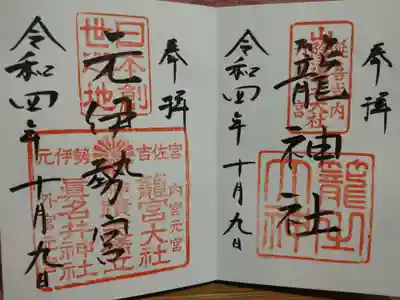 奉拝
籠神社
令和四年十月九日
奉拝
元伊勢宮
令和四年十月九日
日本創
元伊勢 吉佐宮
内宮元宮
籠宮大社
眞名井神社